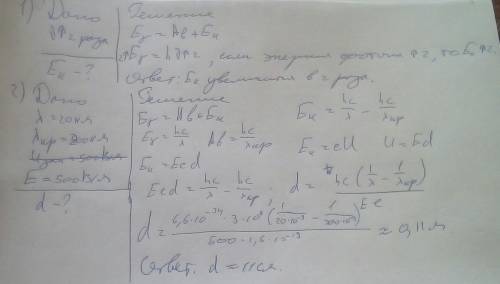 1) Дано
ν↑2 раза
Eк - ?
Решение
Eγ = Aв + Eк
↑Eγ = hν↑2, если энергия фотона ↑2, то Eк↑2.
Ответ: Eк увеличится в 2 раза.
2) Дано
λ = 20нм
λкр = 200нм
E = 500В/м
d - ?
Решение
Eγ = Aв + Eк
Eк = hc/λ - hc/λкр
Eγ = hc/λ Aв = hc/λкр
Eк = eU U = Ed
Eк = Eed
Eed = hc/λ - hc/λкр ; d = hc(1/λ - 1/λкр)/Ee
d = 6,6·10⁻³⁴·3·10⁸(1/20·10⁻⁹ - 1/200·10⁻⁹)/500·1,6·10⁻¹⁹ ≈ 0,11м
Ответ: d = 11см.